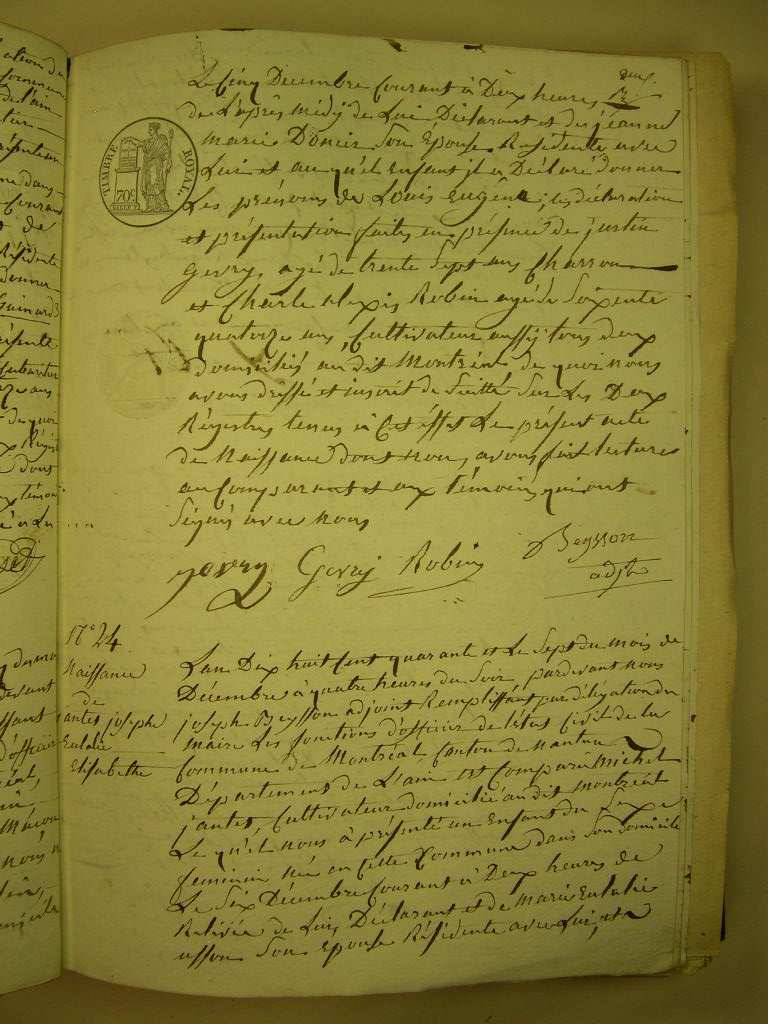 deux.
12.
Le Cinq Décembre Courant à Deux heures
de L'après médy de Lui Déclarant et de jéanne
marie Doncin Son Epouse Résidente avec
Lui et au qu'el Enfant jl a Déclaré donner
Les prénoms de Louis Eugène les déclaration
et présentation faites en présence de justin
Gevry, agé de trente Sept ans Charron
et Charle alexis Robin agé de Soixente
quatorze ans, Cultivateur aussy tous deux
domiciliés au dit Montréal de quoi nous
avons dressé et inscrit de Suitte Sur Les Deux
Régistres tenus à Cet éffet Le présent acte
de Naissance dont nous avons fait lecture
au Comparant et aux témoins qui ont
Signés avec nous
Gevry Robin Beysson
adjt
TIMBRE ROYAL
70c
N° 24
Naissance
de
jantet josephe
Eulalie
Elisabethe
L'an Dix huit Cent quarante et Le Sept du mois de
Décembre à quatre heures du Soir, pardevant nous
joseph Beysson adjoint Remplissant par délégation du
maire Les fonctions d'officier de L'état Civil de la
Commune de Montréal Canton de Nantua
Département de L'ain est Comparu Michel
jantet, Cultivateur domicilié au dit Montréal
Le qu'el nous à présenté un Enfant du Sexe
feminin née en Cette Commune dans Son domicile
Le Six Décembre Courant à Deux heures de
Relevée de Lui Déclarant et de Marie Eulalie
Son Epouse Résidente avec Lui, et